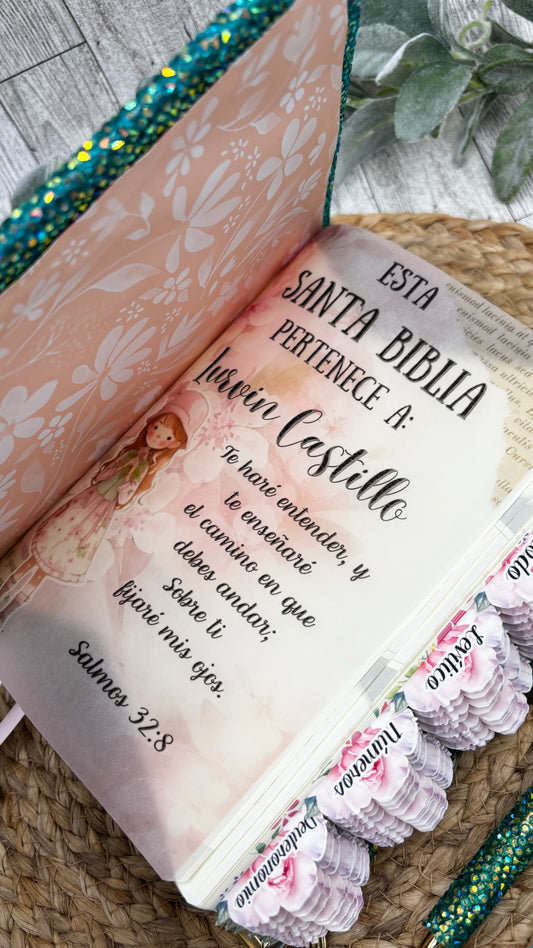 ESTA
SANTA BIBLIA
PERTENECE A:
Iurvin Castillo
Te haré entender, y
te enseñaré
el camino en que
debes andar;
Sobre ti
fijaré mis ojos.
Salmos 32:8
Levítico
Números
Deuteronomio